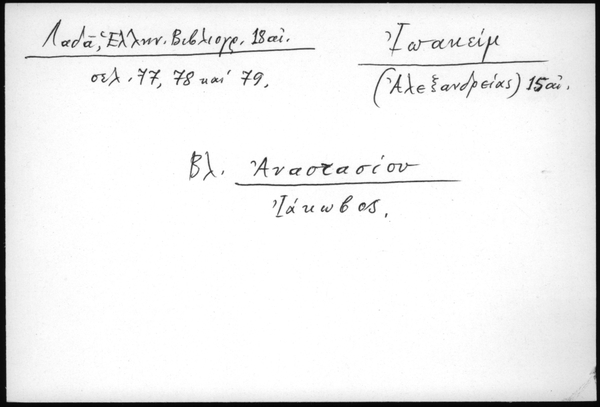 Λαδᾶ, Ἑλλην. Βιβλιογρ. 18 αἰ.
σελ. 77, 78 καί 79.
Ἰωακείμ
(Ἀλεξανδρείας) 15 αἰ.
Βλ. Ἀναστασίου
Ἰάκωβος.